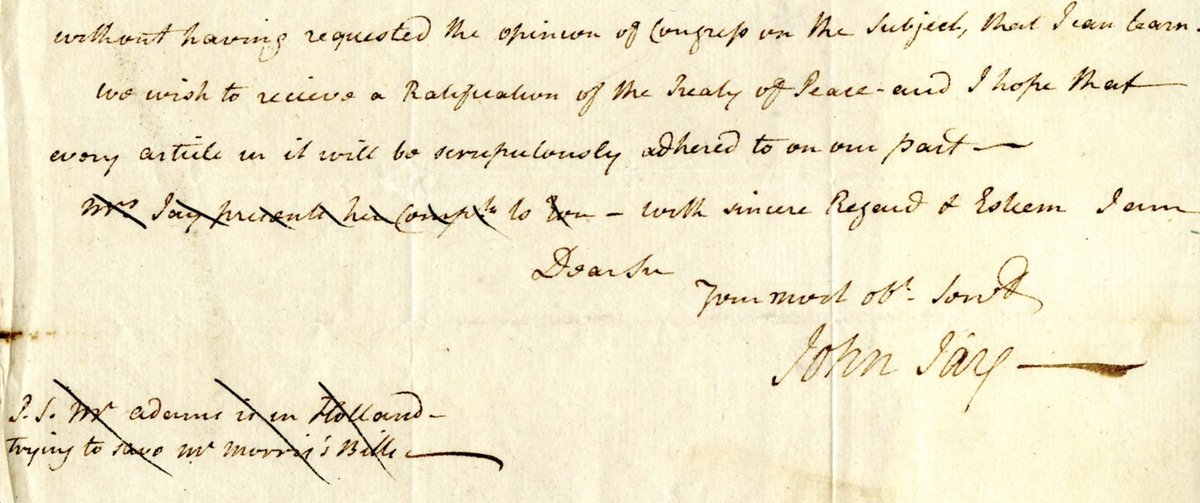 without having requested the opinion of Congress on the Subject, that I can learn.
we wish to recieve a Ratification of the Treaty of Peace - and I hope that
every article in it will be scrupulously adhered to on our part —
Mrs. Jay presents her Compts. to You - with sincere Regard & Esteem I am
Dear Sir
Your most obt. Servt.
John Jay —
P.S. Mr. Adams is in Holland -
trying to save Mr. Morris's Bills —